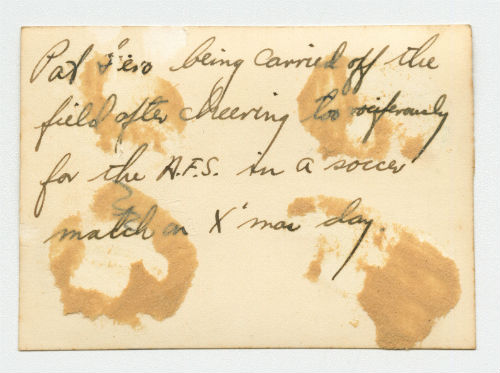 Pat Fero being carried off the
field after cheering too vociferously
for the A.F.S. in a soccer
match on X'mas day.